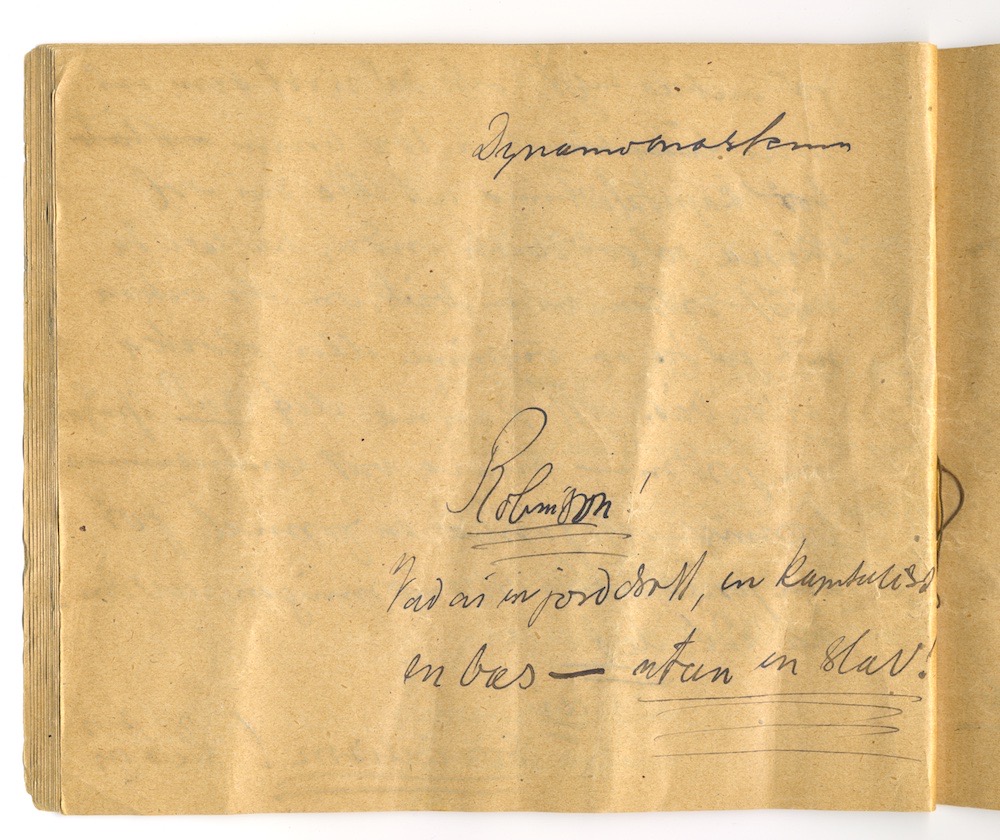 Dynamomaskinen
Robinson!
Vad är en jorddrott, en kapitalist
en bas — utan en slav!